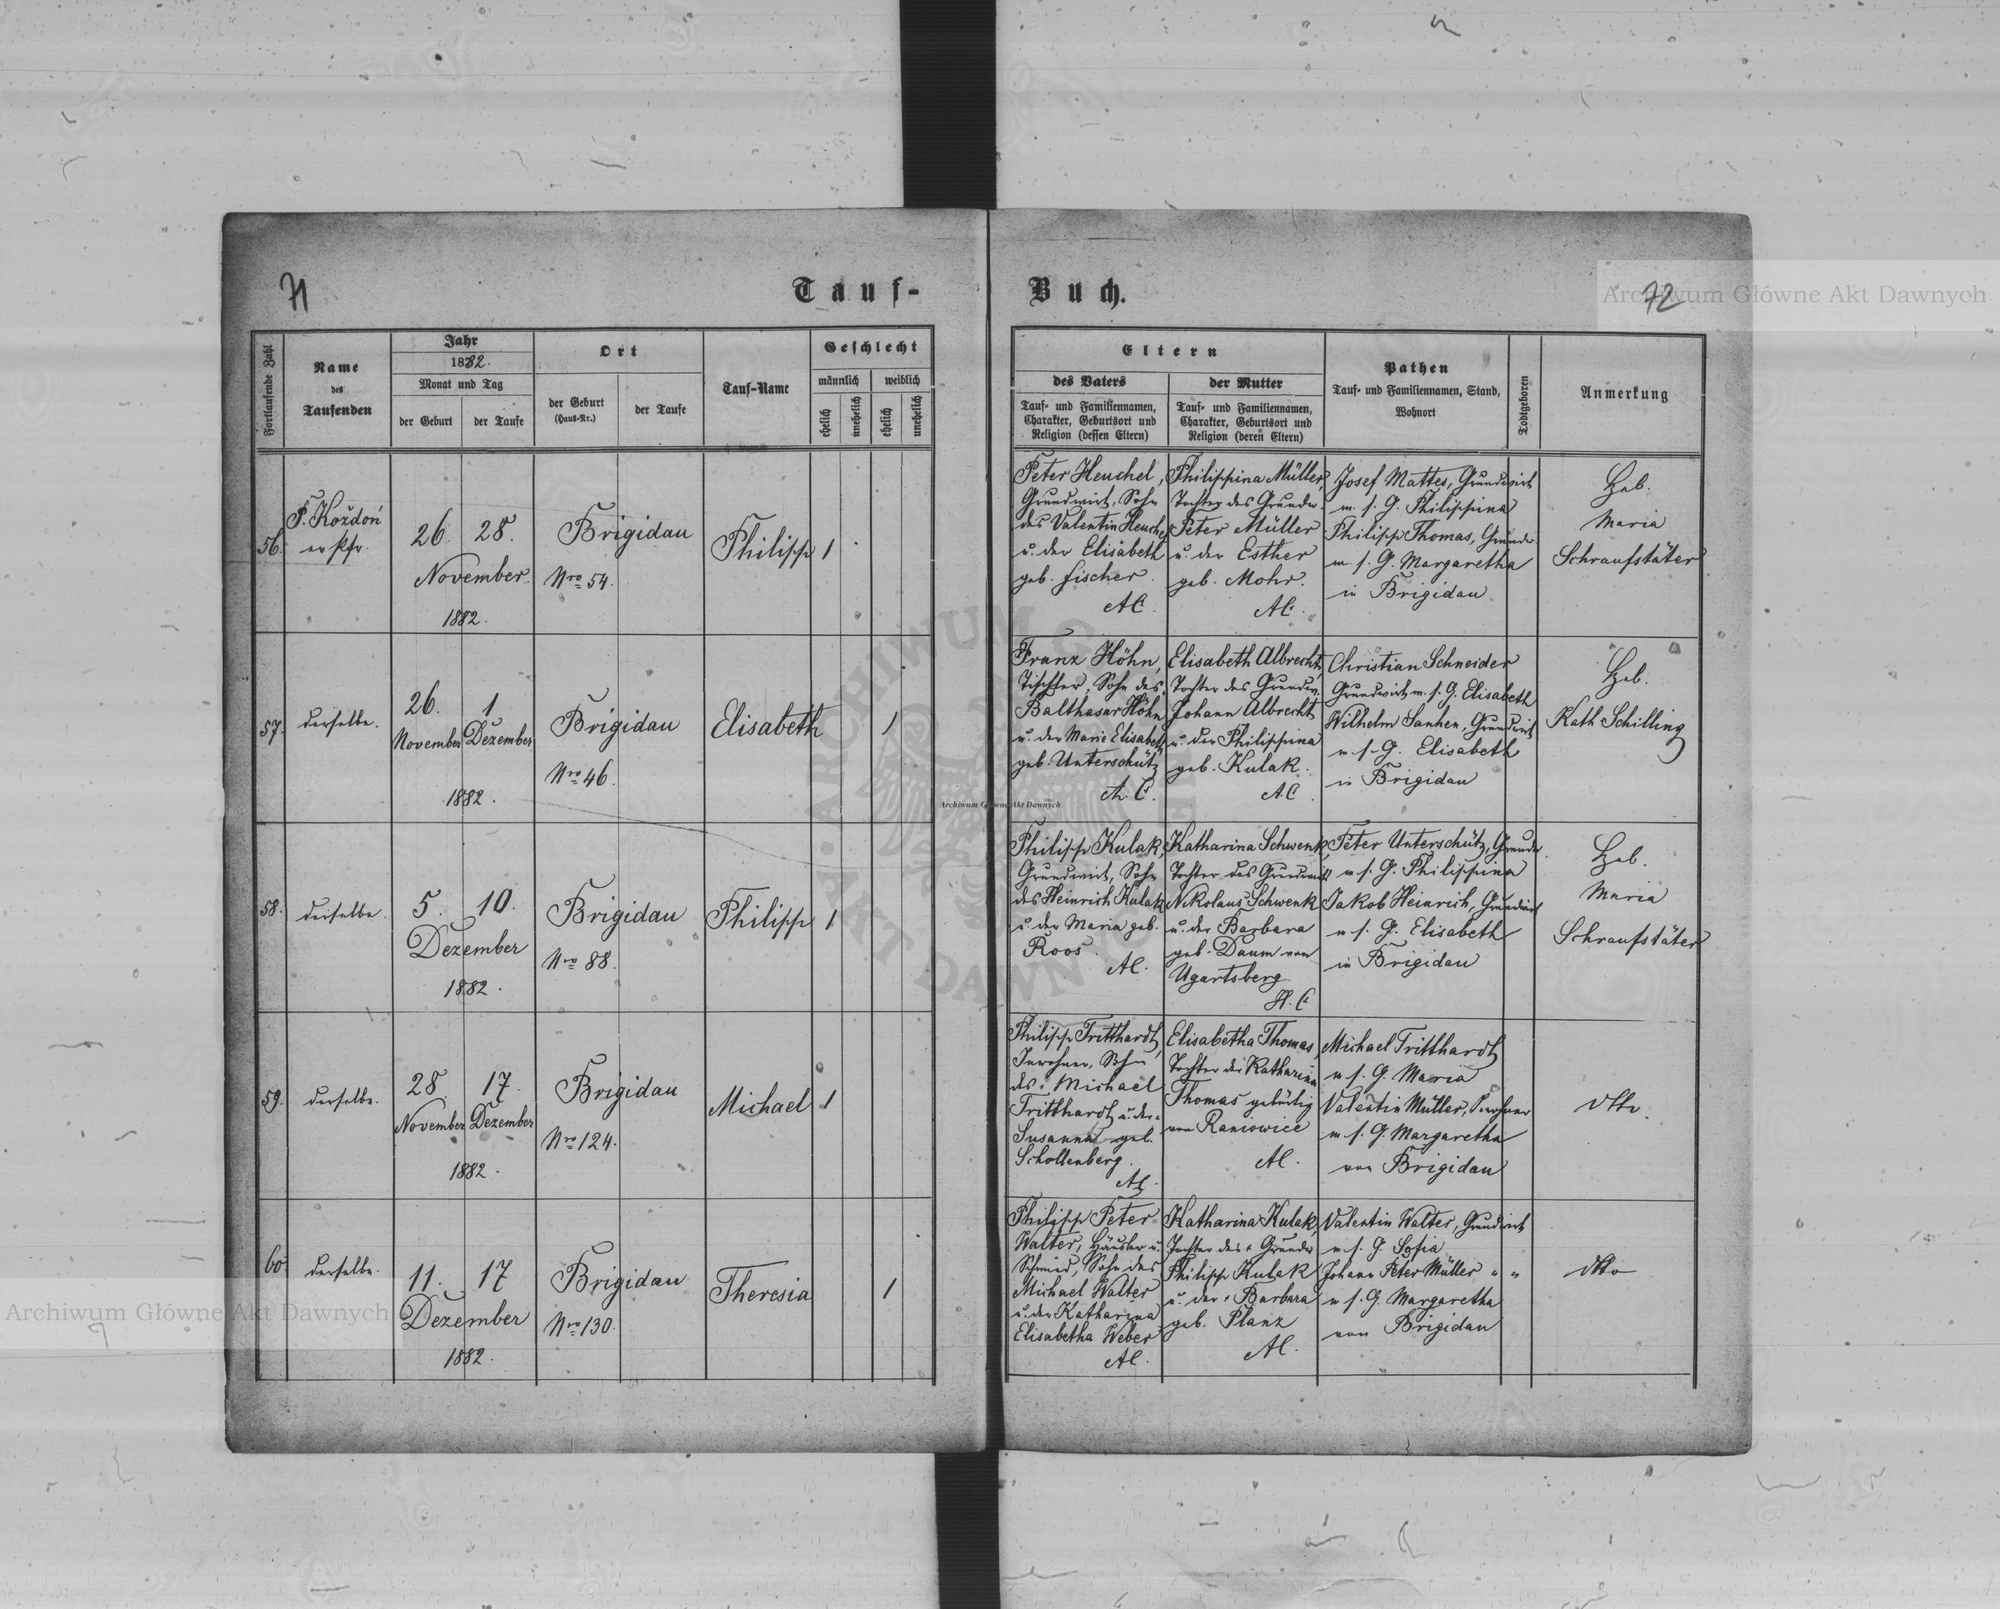 71
Tauf-
Buch.
72
Fortlaufende Zahl
Name
des
Taufenden
Jahr
1882.
Monat und Tag
der Geburt
der Taufe
Ort
der Geburt
(Haus-Nr.)
der Taufe
Tauf-Name
Geschlecht
männlich
weiblich
ehelich
unehelich
ehelich
unehelich
Eltern
des Vaters
Tauf- und Familiennamen,
Charakter, Geburtsort und
Religion (dessen Eltern)
der Mutter
Tauf- und Familiennamen,
Charakter, Geburtsort und
Religion (deren Eltern)
Pathen
Tauf- und Familiennamen, Stand,
Wohnort
Todtgeboren
Anmerkung
56.
P. Koždoń
ev Pfr.
26.
28.
November.
1882.
Brigidau
Nro 54.
Philipp
1
Peter Heuchel,
Grundwirt, Sohn
des Valentin Heuchel
u. der Elisabeth
geb. Fischer.
AC.
Philippina Müller,
Tochter des Grundw.
Peter Müller
u. der Esther
geb. Mohr.
AC.
Josef Mattes, Grundwirt
m. s. G. Philippina
Philipp Thomas, Grundw
m. s. G. Margaretha
in Brigidau
Heb.
Maria
Schraufstäter
57.
derselbe.
26.
November
1
Dezember
1882.
Brigidau
Nro 46.
Elisabeth
1
Franz Höhn,
Tischler, Sohn des
Balthasar Höhn
u. der Marie Elisabeth
geb. Unterschütz
A. C.
Elisabeth Albrecht,
Tochter des Grundw.
Johann Albrecht
u. der Philippina
geb. Kulak.
A.C.
Christian Schneider
Grundwirt m. s. G. Elisabeth
Wilhelm Sanhen, Grundwirt
m s. G. Elisabeth
in Brigidau
Heb.
Kath Schilling
58.
derselbe.
5.
10.
Dezember
1882.
Brigidau
Nro 88.
Philipp
1
Philipp Kulak,
Grundwirt, Sohn
des Heinrich Kulak
u. der Maria geb.
Roos.
AC.
Katharina Schwenk,
Tochter des Grundwirt
Nikolaus Schwenk
u. der Barbara
geb. Daum von
Ugartsberg.
H. C
Peter Unterschütz, Grundw.
m s. G. Philippina
Jakob Heinrich, Grundwirt
m s. G. Elisabeth
in Brigidau
Heb.
Maria
Schraufstäter
59.
derselbe.
28.
November
17.
Dezember
1882.
Brigidau
Nro 124.
Michael
1
Philipp Tritthardt,
Inwohner, Sohn
des Michael
Tritthardt u. der
Susanna geb.
Schollenberg.
AC.
Elisabetha Thomas,
Tochter der Katharina
Thomas gebürtig
von Raniowice
AC.
Michael Tritthardt
m s. G. Maria
Valentin Müller, Inwohner
m s. G. Margaretha
von Brigidau
dtto.
60.
derselbe.
11.
17
Dezember
1882.
Brigidau
Nro 130.
Theresia
1
Philipp Peter
Walter, Häusler u.
Schmied, Sohn des
Michael Walter
u. der Katharina
Elisabetha Weber
AC.
Katharina Kulak,
Tochter des + Grundw
Philipp Kulak
u. der + Barbara
geb. Planz
AC.
Valentin Walter, Grundwirt
m s. G. Sofia
Johann Peter Müller " "
m s. G. Margaretha
von Brigidau
dtto
Archiwum Główne Akt Dawnych
Archiwum Główne Akt Dawnych
Archiwum Główne Akt Dawnych